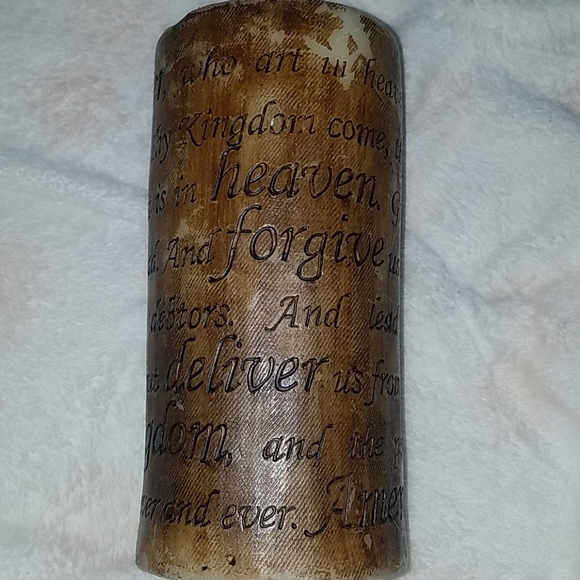 who art in heav
Kingdom come,
is in heaven. G
And forgive us
debtors. And lead
deliver us from
gdom, and the p
ver and ever. Amen